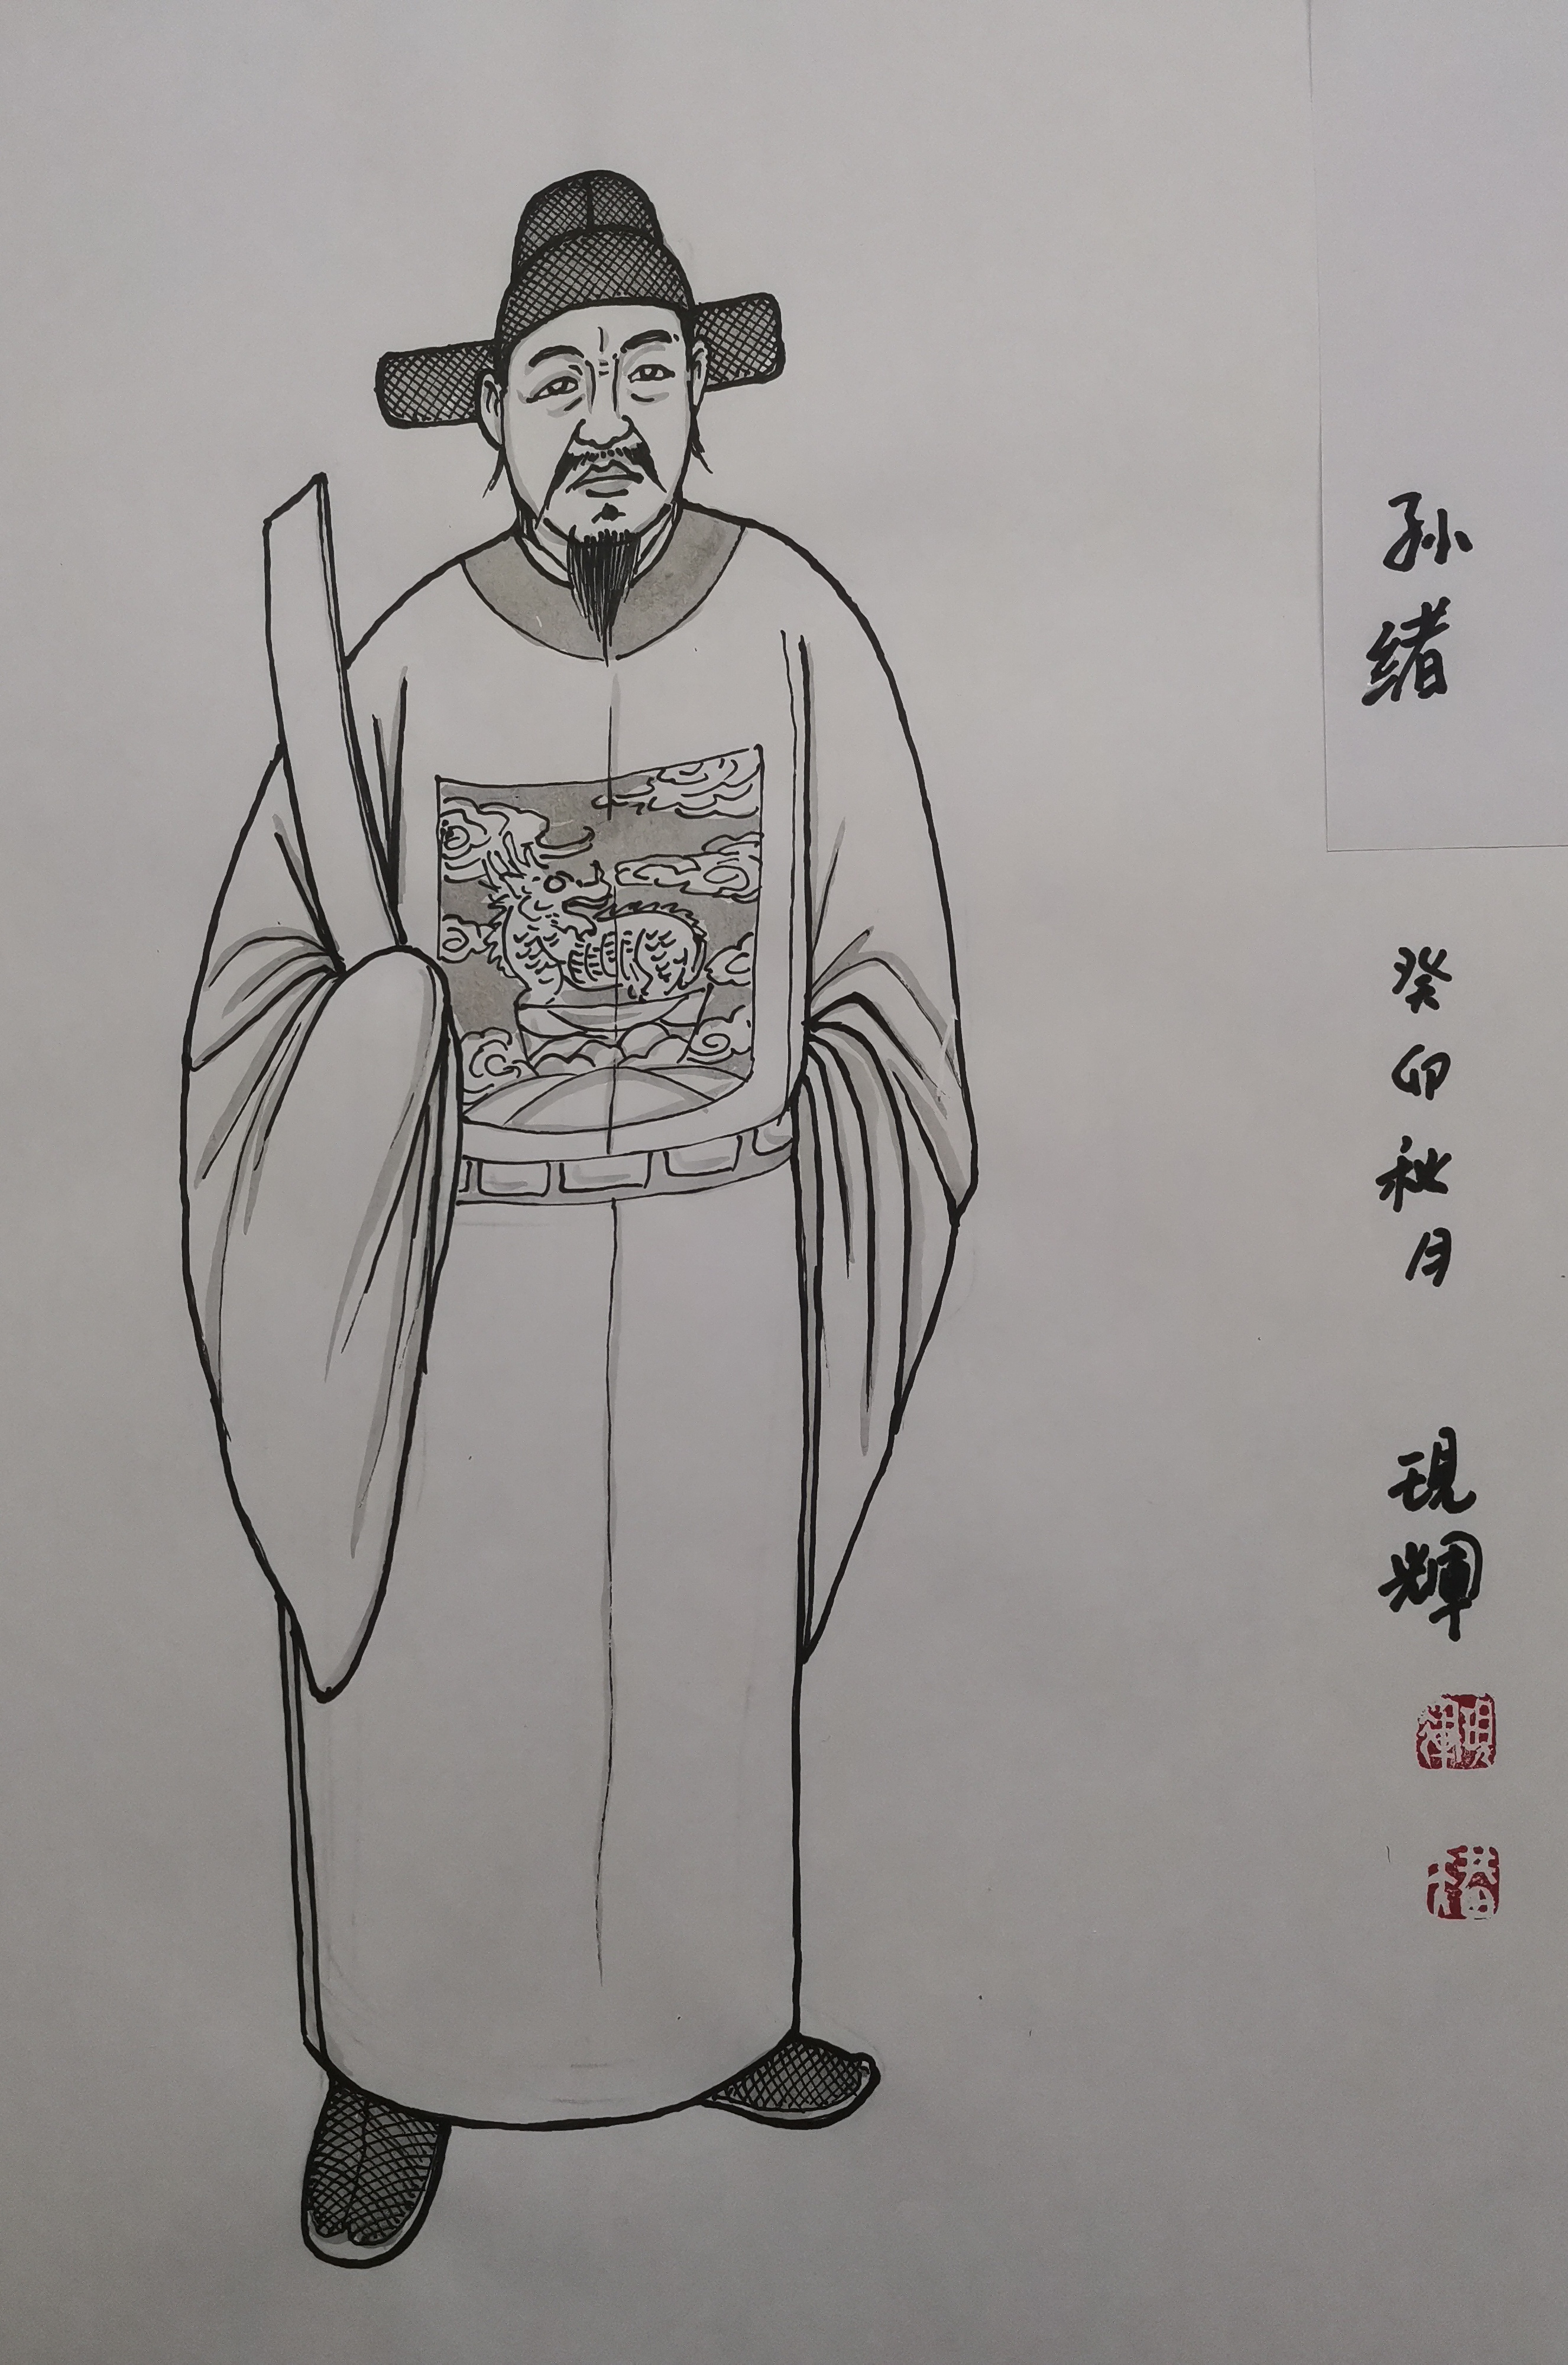 孙绪
癸卯秋月
現輝